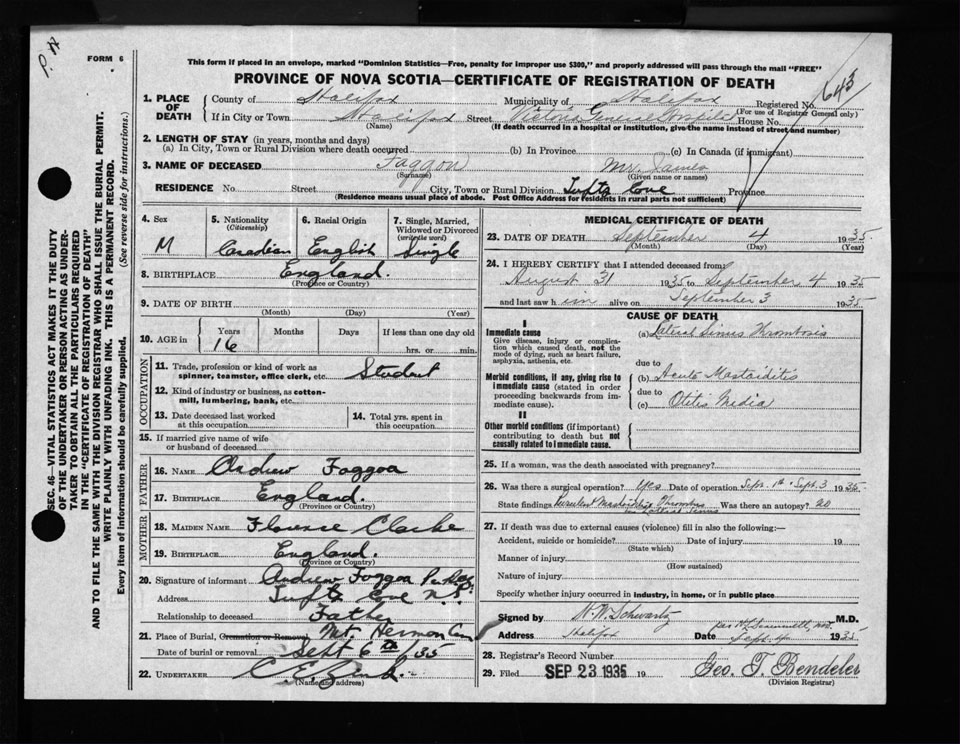 P. N
FORM 6
This form if placed in an envelope, marked "Dominion Statistics—Free, penalty for improper use $300," and properly addressed will pass through the mail "FREE"
PROVINCE OF NOVA SCOTIA—CERTIFICATE OF REGISTRATION OF DEATH
643
1. PLACE OF DEATH
County of Halifax Municipality of Halifax Registered No.
(For use of Registrar General only)
If in City or Town Halifax Street Victoria General Hospital House No.
(Name) (If death occurred in a hospital or institution, give the name instead of street and number)
2. LENGTH OF STAY (in years, months and days)
(a) In City, Town or Rural Division where death occurred (b) In Province (c) In Canada (if immigrant)
3. NAME OF DECEASED Foggon Mr. James
(Surname) (Given name or names)
RESIDENCE No. Street City, Town or Rural Division Tufts Cove Province
(Residence means usual place of abode. Post Office Address for residents in rural parts not sufficient)
4. Sex M
5. Nationality (Citizenship) Canadian
6. Racial Origin English
7. Single, Married, Widowed or Divorced (write the word) Single
8. BIRTHPLACE England.
(Province or Country)
9. DATE OF BIRTH
(Month) (Day) (Year)
10. AGE in Years 16 Months Days If less than one day old hrs. or min.
OCCUPATION
11. Trade, profession or kind of work as spinner, teamster, office clerk, etc. Student
12. Kind of industry or business, as cotton-mill, lumbering, bank, etc.
13. Date deceased last worked at this occupation
14. Total yrs. spent in this occupation
15. If married give name of wife or husband of deceased
FATHER
16. NAME Andrew Foggoa
17. BIRTHPLACE England.
(Province or Country)
MOTHER
18. MAIDEN NAME Florence Clarke
19. BIRTHPLACE England.
(Province or Country)
20. Signature of informant Andrew Foggoa Per
Address Tufts Cove N.S.
Relationship to deceased Father
21. Place of Burial, Cremation or Removal Mt. Hermon Cem
Date of burial or removal Sept 6th /35
22. UNDERTAKER C. E.
(Name and address)
MEDICAL CERTIFICATE OF DEATH
23. DATE OF DEATH September 4 1935
(Month) (Day) (Year)
24. I HEREBY CERTIFY that I attended deceased from
August 31 1935 to September 4 1935
and last saw him alive on September 3 1935
CAUSE OF DEATH
I
Immediate cause
Give disease, injury or complication which caused death, not the mode of dying, such as heart failure, asphyxia, asthenia, etc.
(a) Lateral Sinus Thrombosis
due to
Morbid conditions, if any, giving rise to immediate cause (stated in order proceeding backwards from immediate cause).
(b) Acute Mastoiditis
due to
(c) Otitis Media
II
Other morbid conditions (if important) contributing to death but not causally related to immediate cause.
25. If a woman, was the death associated with pregnancy?
26. Was there a surgical operation? Yes Date of operation Sept. 1st - Sept. 3 1935
State findings Purulent Mastoiditis Thrombus in Lateral Sinus Was there an autopsy? no
27. If death was due to external causes (violence) fill in also the following:—
Accident, suicide or homicide? Date of injury 19
(State which)
Manner of injury
(How sustained)
Nature of injury
Specify whether injury occurred in industry, in home, or in public place
Signed by N. W. Schwartz M.D.
Address Halifax Date Sept. 4 1935
28. Registrar's Record Number
29. Filed SEP 23 1935 19 Geo. T. Bendeler
(Division Registrar)
SEC. 46—VITAL STATISTICS ACT MAKES IT THE DUTY
OF THE UNDERTAKER OR PERSON ACTING AS UNDER-
TAKER TO OBTAIN ALL THE PARTICULARS REQUIRED
IN THE "CERTIFICATE OF REGISTRATION OF DEATH"
AND TO FILE THE SAME WITH THE DIVISION REGISTRAR WHO SHALL ISSUE THE BURIAL PERMIT.
WRITE PLAINLY WITH UNFADING INK. THIS IS A PERMANENT RECORD.
Every item of information should be carefully supplied. (See reverse side for instructions.)